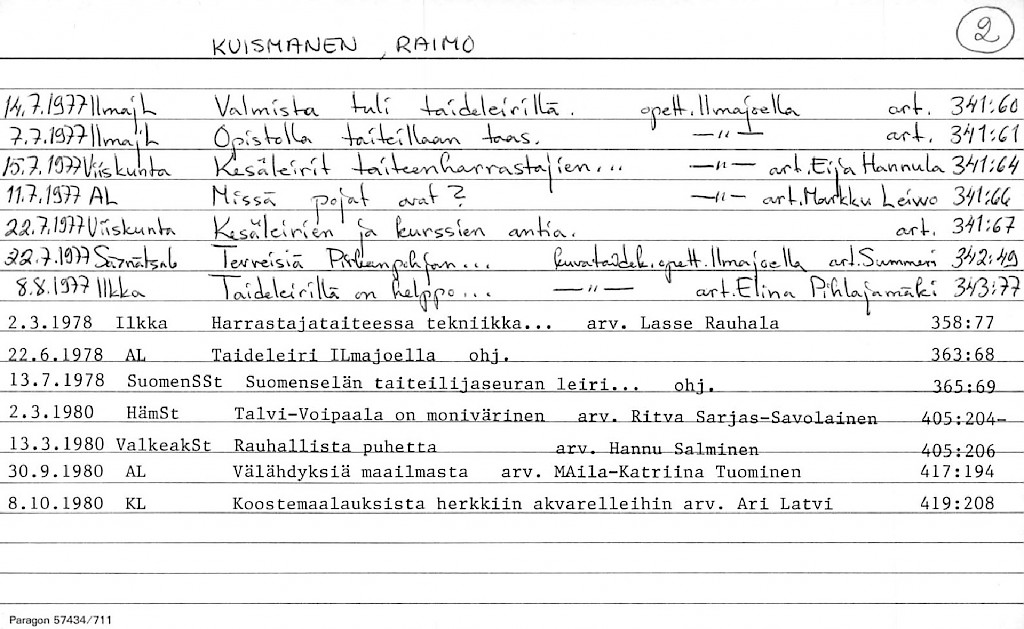 KUISMANEN, RAIMO 2
14.7.1977 IlmajL Valmista tuli taideleirillä. opett. Ilmajoella art. 341:60
7.7.1977 IlmajL Opistolla taiteillaan taas. —"— art. 341:61
15.7.1977 Viiskunta Kesäleirit taiteenharrastajien... —"— art. Eija Hannula 341:64
11.7.1977 AL Missä pojat ovat? —"— art. Markku Leiwo 341:66
22.7.1977 Viiskunta Kesäleirien ja kurssien antia. art. 341:67
22.7.1977 Terveisiä Pirkanpohjan... kuvataidek. opett. Ilmajoella art. Summeri 342:49
8.8.1977 Ilkka Taideleirillä on helppo... —"— art. Elina Pihlajamäki 343:77
2.3.1978 Ilkka Harrastajataiteessa tekniikka... arv. Lasse Rauhala 358:77
22.6.1978 AL Taideleiri ILmajoella ohj. 363:68
13.7.1978 SuomenSSt Suomenselän taiteilijaseuran leiri... ohj. 365:69
2.3.1980 HämSt Talvi-Voipaala on monivärinen arv. Ritva Sarjas-Savolainen 405:204-
13.3.1980 ValkeakSt Rauhallista puhetta arv. Hannu Salminen 405:206
30.9.1980 AL Välähdyksiä maailmasta arv. MAila-Katriina Tuominen 417:194
8.10.1980 KL Koostemaalauksista herkkiin akvarelleihin arv. Ari Latvi 419:208
Paragon 57434/711